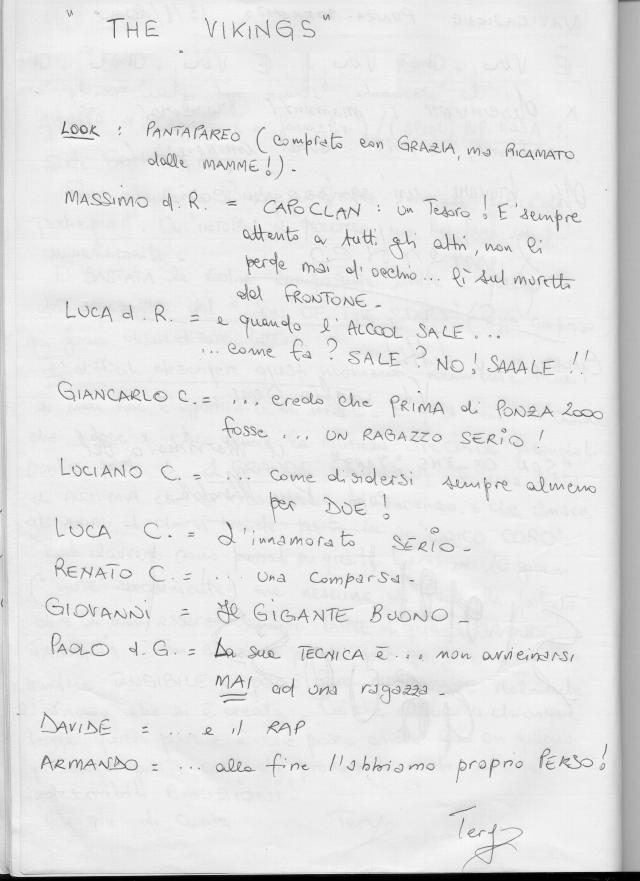 "THE VIKINGS"
LOOK : PANTAPAREO (comprato con GRAZIA, ma RICAMATO
dalle MAMME!).
MASSIMO d.R. = CAPOCLAN : un Tesoro! E' sempre
attento a tutti gli altri, non li
perde mai d'occhio... lì sul muretto
del FRONTONE.
LUCA d.R. = e quando l'ALCOOL SALE...
... come fa? SALE? NO! SAAALE!!
GIANCARLO C. = ... credo che PRIMA di PONZA 2000
fosse ... UN RAGAZZO SERIO!
LUCIANO C. = ... come disidersi sempre almeno
per DUE!
LUCA C. = L'innamorato SERIO.
RENATO C. = ... una comparsa.
GIOVANNI = Il GIGANTE BUONO.
PAOLO d.G. = La sua TECNICA è ... non avvicinarsi
MAI ad una ragazza.
DAVIDE = ... e il RAP
ARMANDO = ... alla fine l'abbiamo proprio PERSO!